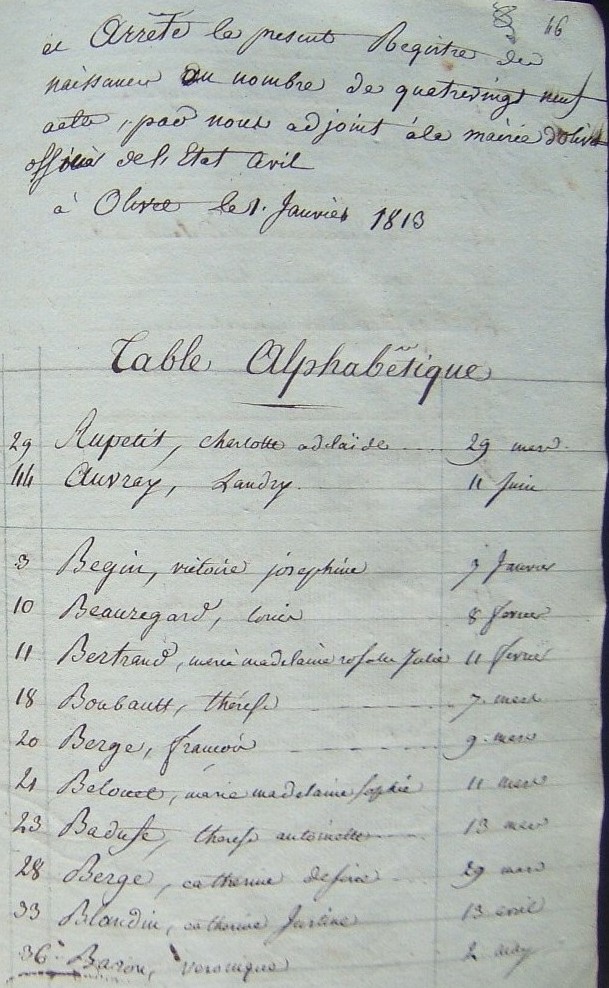 46
et Arrêté le present Registre de
naissances au nombre de quatrevingt neuf
actes, par nous adjoint à la mairie d'olivet
officier de l'Etat Civil
à Olivet le 1. Janvier 1813
Table Alphabétique
29 Aupetit, charlotte adelaide 29 mars
44 Auvray, Landry 11 Juin
3 Begin, victoire josephine 7 Janvier
10 Beauregard, Louis 8 fevrier
11 Bertrand, marie madelaine rosalie Julie 11 fevrier
18 Boubault, therese 7 mars
20 Berge, francois 9 mars
21 marie madelaine sophie 11 mars
23 therese antoinette 13 mars
28 Berge, catherine desirée 29 mars
33 Blondin, catherine Justine 13 avril
36 Baron, veronique 2 may